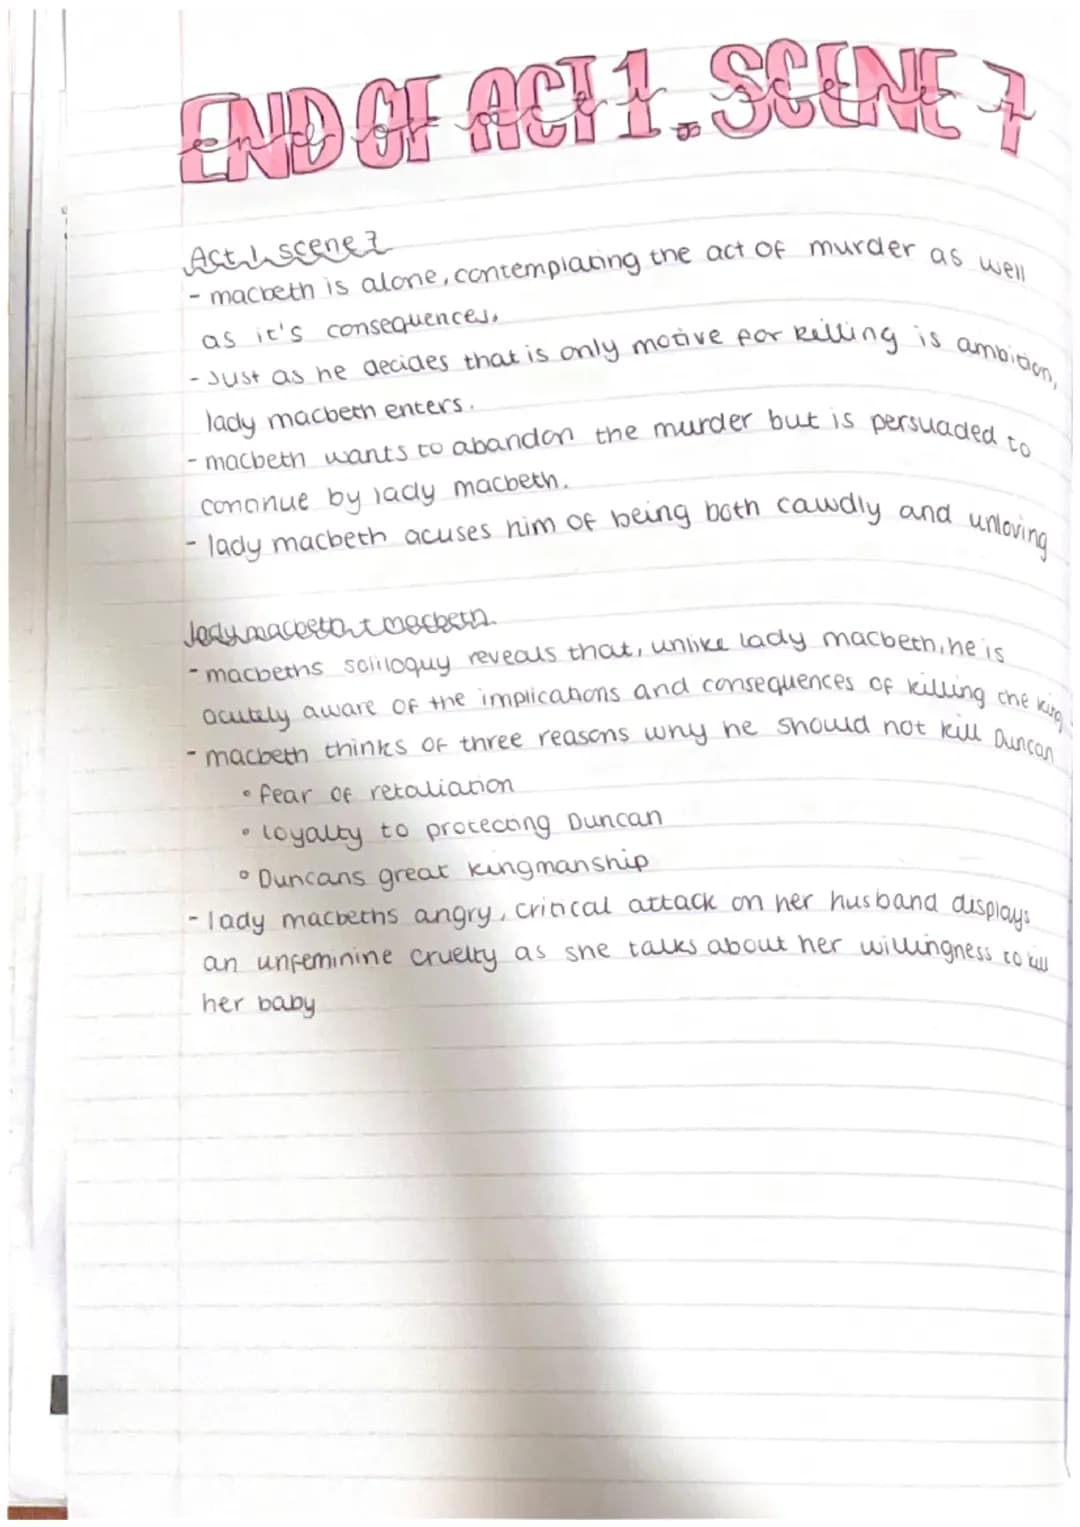 END OF ACT 1. SCENE 7
Act 1, scene 7
- macbeth is alone, contemplating the act of murder as well
as it's consequences.
- Just as he decides that is only motive for killing is ambition,
lady macbeth enters.
- macbeth wants to abandon the murder but is persuaded to
continue by lady macbeth.
- lady macbeth acuses him of being both cawdly and unloving
lady macbeth + macbeth
- macbeths soliloquy reveals that, unlike lady macbeth, he is
acutely aware of the implications and consequences of killing the king
- macbeth thinks of three reasons why he should not kill Duncan
• fear of retaliation
• loyalty to protecting Duncan
• Duncans great kingmanship
- lady macbeths angry, critical attack on her husband displays
an unfeminine cruelty as she talks about her willingness to kill
her baby